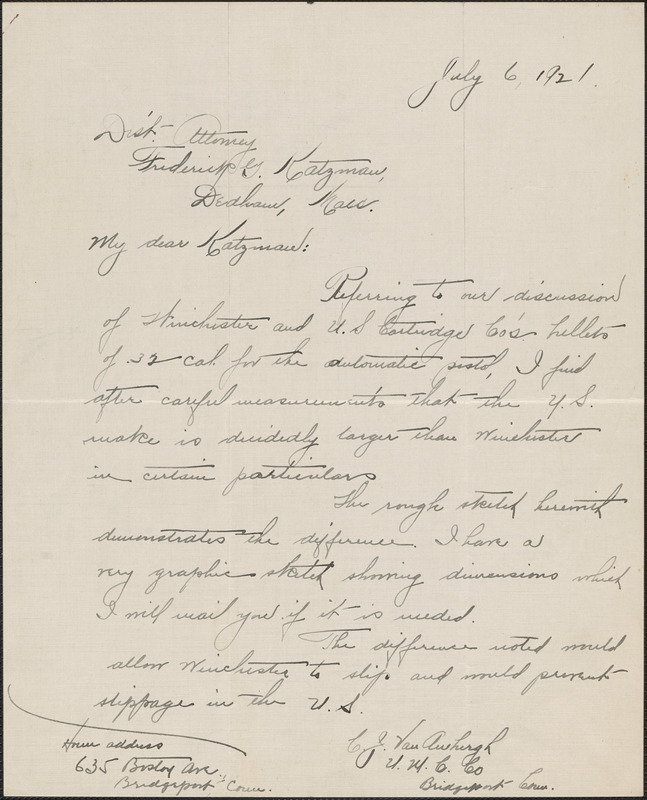 July 6, 1921.
Dist. Attorney
Frederick G. Katzman,
Dedham, Mass.
My dear Katzman:
Referring to our discussion
of Winchester and U.S Cartridge Co's bullets
of .32 cal. for the automatic pistol, I find
after careful measurements that the U.S.
make is decidedly larger than Winchester
in certain particulars
The rough sketch herewith
demonstrates the difference. I have a
very graphic sketch showing dimensions which
I will mail you if it is needed.
The difference noted would
allow Winchester to slip and would prevent
slippage in the U.S.
C. J. Van Amburgh
U. M. C. Co
Bridgeport Conn.
Home address
635 Boston Ave.,
Bridgeport Conn.